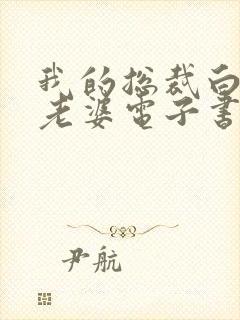 我的总裁白
老婆电子書
尹航